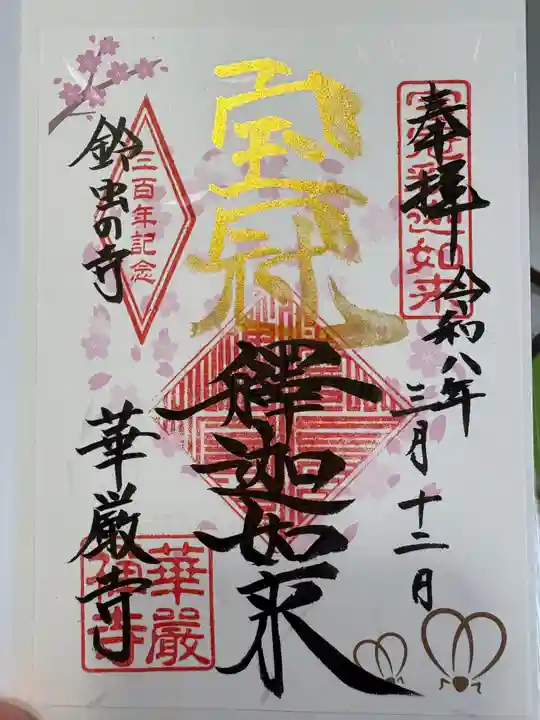 奉拝
令和八年
三月十二日
宝冠
釋迦如来
鈴虫の寺
華厳寺
三百年記念
宝冠釋迦如来
華嚴禅寺